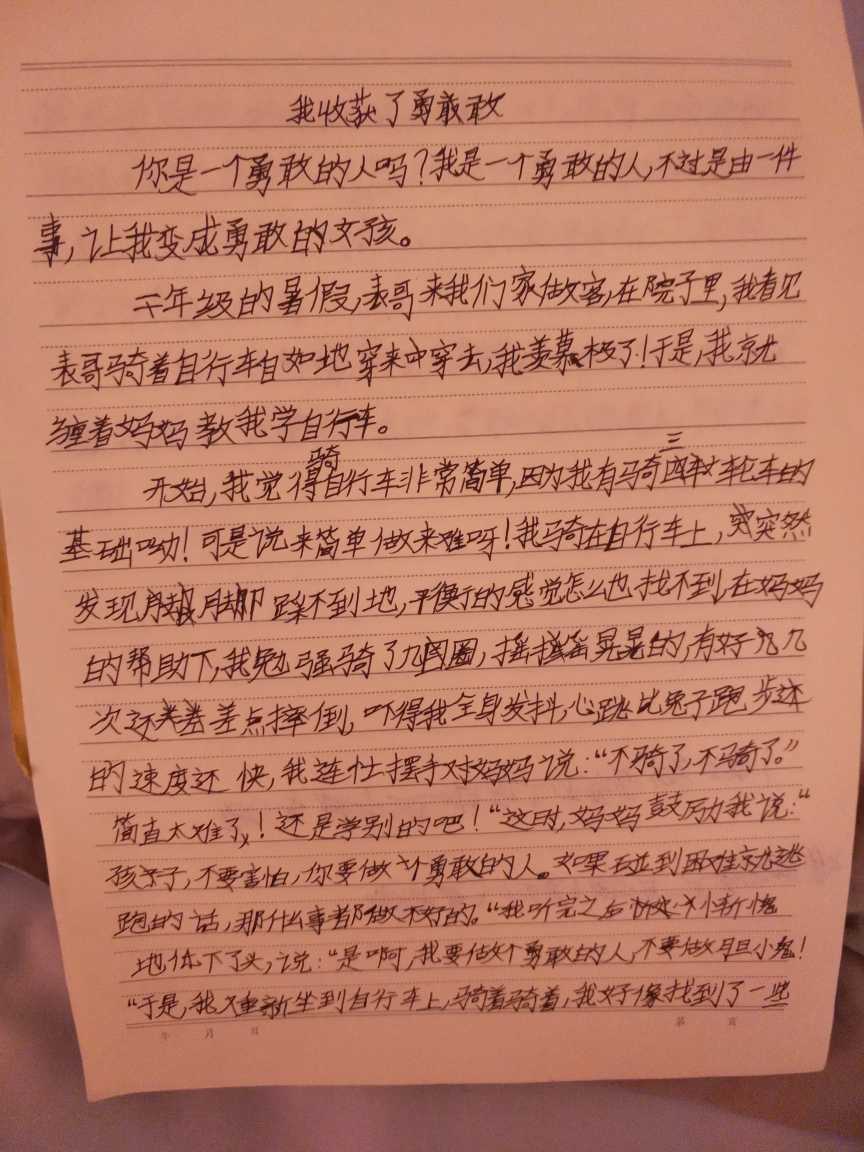 我收获了勇敢敢
你是一个勇敢的人吗?我是一个勇敢的人,不过是由一件
事,让我变成勇敢的女孩。
年级的暑假,表哥来我们家做客,在院子里,我看见
表哥骑着自行车自如地穿来穿去,我羡慕极了!于是,我就
缠着妈妈教我学自行车。
开始,我觉得骑自行车非常简单,因为我有骑三轮车的
基础呦!可是说来简单做来难呀!我骑在自行车上,突然
发现脚踩不到地,平衡的感觉怎么也找不到,在妈妈
的帮助下,我勉强骑了几圈,摇摇晃晃的,有好几
次还差点摔倒,吓得我全身发抖,心跳比兔子跑步还
的速度还快,我连忙摆手对妈妈说:“不骑了,不骑了。”
简直太难了!还是学别的吧!“这时,妈妈鼓励我说:“
孩子,不要害怕,你要做个勇敢的人。如果碰到困难就逃
跑的话,那什么事都做不好的。“我听完之后惭愧
地低下了头,说:“是啊,我要做个勇敢的人,不要做胆小鬼!
“于是,我又重新坐到自行车上,骑着骑着,我好像找到了一些
年 月 日 第 页